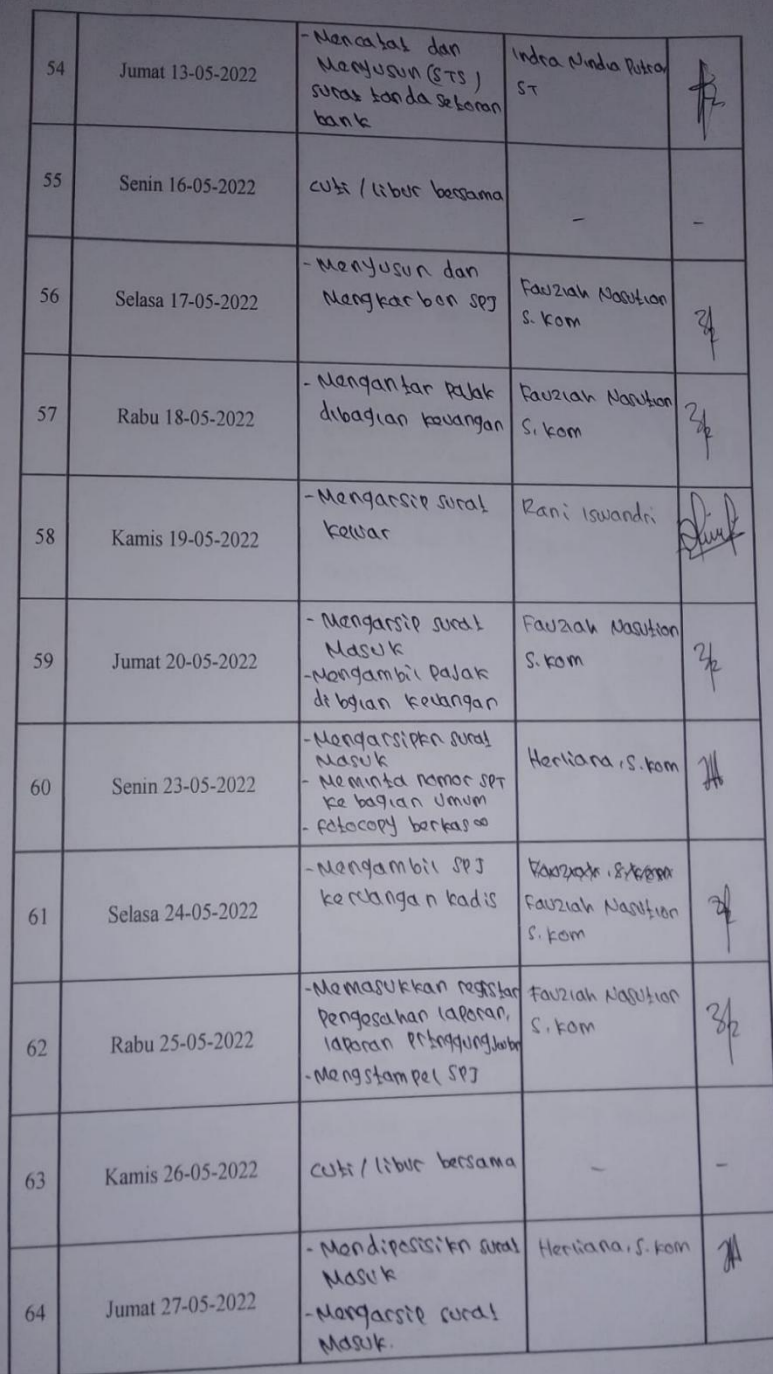 54
Jumat 13-05-2022
- Mencatat dan
Menyusun (STS)
surat tanda setoran
bank
Indra Nindia Putra
ST
55
Senin 16-05-2022
cuti / libur bersama
-
-
56
Selasa 17-05-2022
- Menyusun dan
Mengkarbon SPJ
Fauziah Nasution
S. kom
57
Rabu 18-05-2022
- Mengantar Pajak
dibagian keuangan
Fauziah Nasution
S. kom
58
Kamis 19-05-2022
- Mengarsip surat
keluar
Rani Iswandri
59
Jumat 20-05-2022
- Mengarsip surat
Masuk
- Mengambil Pajak
di bgian keuangan
Fauziah Nasution
S. kom
60
Senin 23-05-2022
- Mengarsipkn surat
Masuk
- Meminta nomor SPT
ke bagian Umum
- fotocopy berkas
Herliana, S. kom
61
Selasa 24-05-2022
- Mengambil SPJ
keruangan kadis
Fauziah Nasution
S. kom
62
Rabu 25-05-2022
- Memasukkan registar
Pengesahan laporan,
laporan
- Mengstampel SPJ
Fauziah Nasution
S. kom
63
Kamis 26-05-2022
cuti / libur bersama
-
-
64
Jumat 27-05-2022
- Mendiposisikn surat
Masuk
- Mengarsip surat
Masuk.
Herliana, S. kom